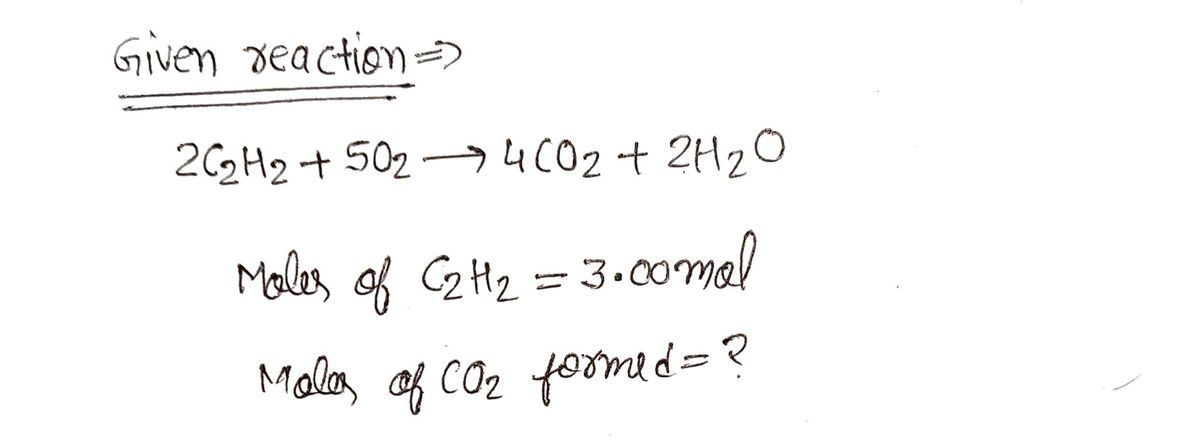 Given reaction ⇒
2C₂H₂ + 5O₂ → 4CO₂ + 2H₂O
Moles of C₂H₂ = 3.00mol
Moles of CO₂ formed = ?